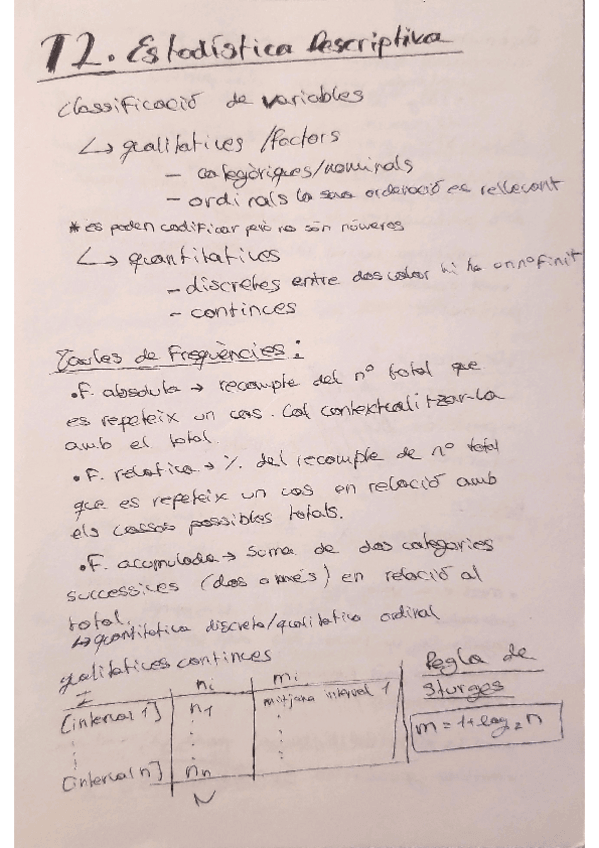 T2. Estadística Descriptiva
Classificació de variables
↳ qualitatives /factors
- categòriques/nominals
- ordinals la seva ordenació es rellevant
* es poden codificar però no són números
↳ quantitatives
- discretes entre dos valor hi ha un nº finit
- contínues
Taules de Freqüències:
• F. absoluta → recompte del nº total que
es repeteix un cas. Cal contextualitzar-la
amb el total.
• F. relativa → % del recompte de nº total
que es repeteix un cas en relació amb
els cassos possibles totals.
• F. acumulada → Suma de dos categories
successives (dos o més) en relació al
total.
↳ quantitativa discreta/qualitativa ordinal
qualitatives continces
I ni mi
[interval 1] n1 mitjana interval 1
[interval n] nn
N
Regla de
Sturges
m = 1+log2 n